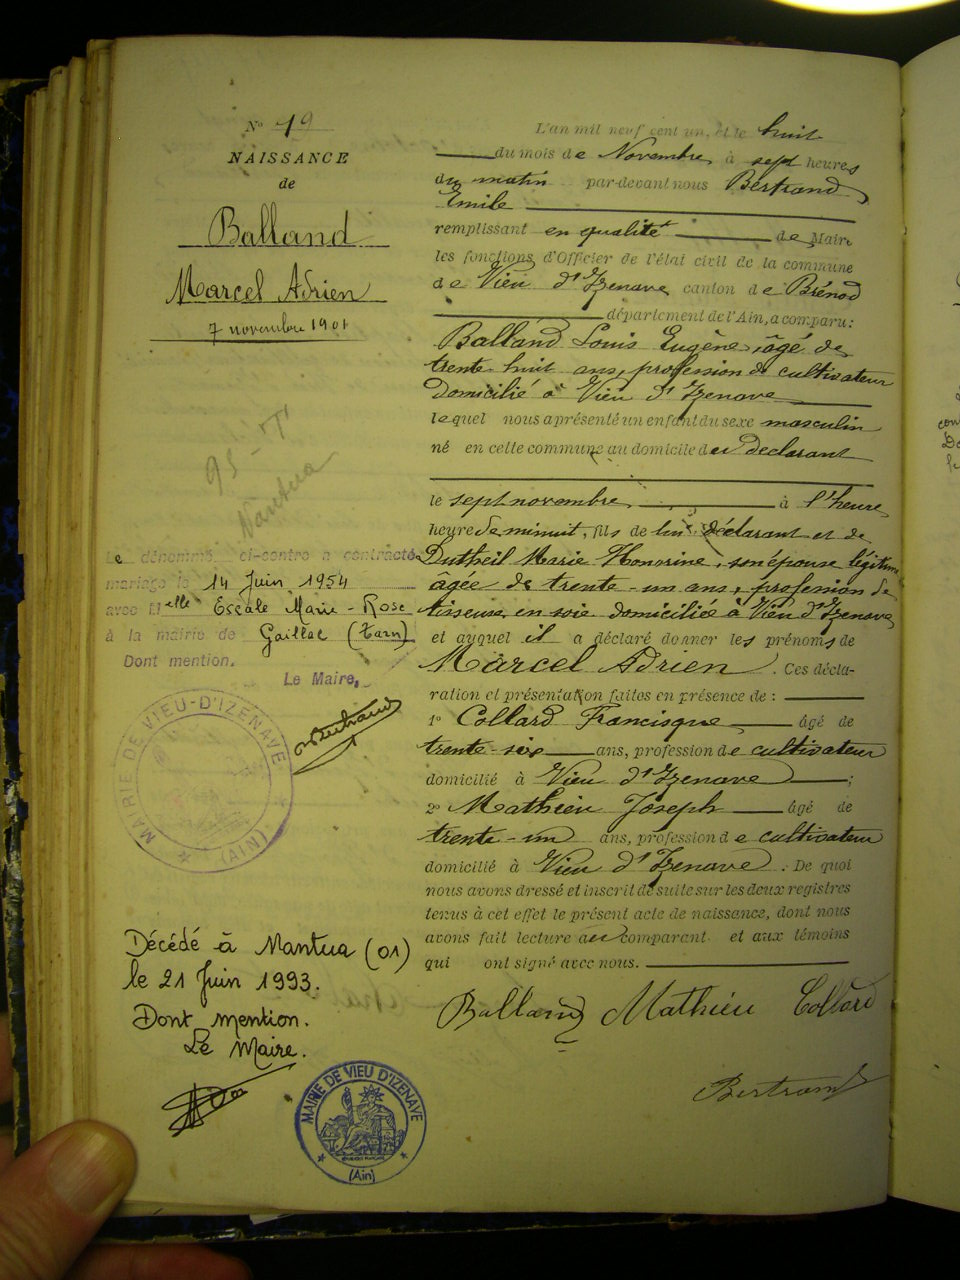 N° 19
NAISSANCE
de
Balland
Marcel Adrien
7 novembre 1901
Nantua
Le dénommé ci-contre a contracté
mariage le 14 Juin 1954
avec Melle Escale Marie-Rose
à la mairie de Gaillac (Tarn)
Dont mention.
Le Maire,
Bertrand
MAIRIE DE VIEU-D'IZENAVE
(AIN)
Décédé à Nantua (01)
le 21 Juin 1993.
Dont mention.
Le Maire.
MAIRIE DE VIEU D'IZENAVE
(Ain)
L'an mil neuf cent un, et le huit
du mois de Novembre à sept heures
du matin par-devant nous Bertrand
Emile
remplissant en qualité de Maire
les fonctions d'Officier de l'état civil de la commune
de Vieu d'Izenave canton de Brénod
département de l'Ain, a comparu:
Balland Louis Eugène, âgé de
trente huit ans, profession de cultivateur
Domicilié à Vieu d'Izenave
lequel nous a présenté un enfant du sexe masculin
né en cette commune au domicile du déclarant
le sept novembre à l'heure
heure de minuit, fils de lui déclarant et de
Dutheil Marie Honorine, son épouse légitime
agée de trente-un ans, profession de
tisseuse en soie domiciliée à Vieu d'Izenave
et auquel il a déclaré donner les prénoms de
Marcel Adrien. Ces décla-
ration et présentation faites en présence de :
1° Collard Francisque âgé de
trente-six ans, profession de cultivateur
domicilié à Vieu d'Izenave ;
2° Mathieu Joseph âgé de
trente-un ans, profession de cultivateur
domicilié à Vieu d'Izenave. De quoi
nous avons dressé et inscrit de suite sur les deux registres
tenus à cet effet le présent acte de naissance, dont nous
avons fait lecture au comparant et aux témoins
qui ont signé avec nous.
Balland Mathieu Collard
Bertrand